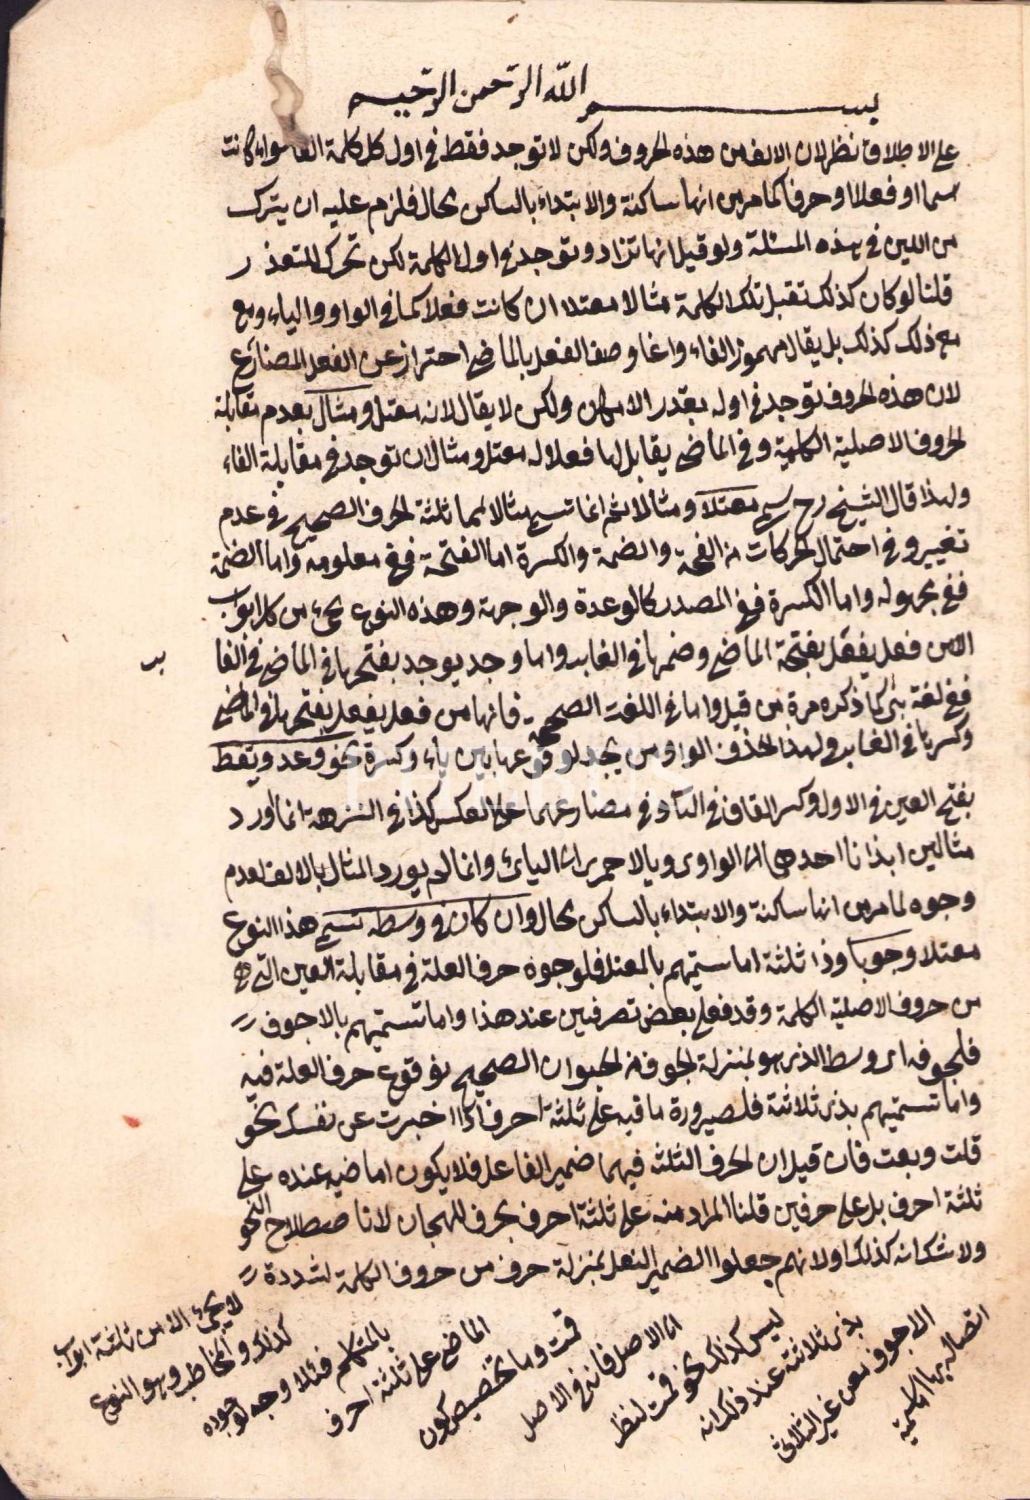 بسم الله الرحمن الرحيم
على الاطلاق نظر لان الالف من هذه الحروف ولكن لا توجد فقط في اول كل كلمة الفا سواء كانت
اسما او فعلا او حرفا كما مر من انها ساكنة والابتداء بالساكن محال فلزم عليه ان يترك
من اللين في هذه المسئلة ولو قيل انها تزاد وتوجد في اول الكلمة لكن تحرك للتعذر
قلنا لو كان كذلك تقبل تلك الكلمة مثالا معتلا ان كانت فعلا كما في الواو والياء ومع
مع ذلك كذلك بل يقال مهموز الفاء وانما وصف الفعل بالماضي احتراز عن الفعل المضارع
لان هذه الحروف توجد في اوله بقدر الامكان ولكن لا يقال لانه معتل ومثال بعدم مقابلة
الحروف الاصلية الكلمية وفي الماضي يقابل لها فعلا له معتل ومثال لان توجد في مقابلة الفاء
ولهذا قال الشيخ رح سمي معتلا ومثالا ثم انما تسمي مثالا لمماثلة الحرف الصحيح في عدم
تغيير وفي احتمال الحركات من الفتحة والضمة والكسرة اما الفتحة ففي معلومه واما الضمة
ففي مجهوله واما الكسرة ففي المصدر كالوعدة والوجهة وهذه النوع يجئ من كل ابواب
الا من فعل يفعل بفتحة الماضي وضمها في الغابر واما وجد يوجد بفتحها في الماضي في الغا
بر
ففي لغة بني كما ذكره مرة من قبل واما في اللغت الصحيحة فانها من فعل يفعل بفتحها في الماضي
وكسرها في الغابر ولهذا الحذف الواو من يجد لوقوعها بين ياء وكسرة نحو وعد ويقظ
بفتح العين في الاول وكسر القاف في الثاني وفي مضارعهما على العكس كذا في النزهة انما اورد
مثالين ايذانا احدهما الى الواوي وبالاخر الى اليائي وانما لم يورد المثال بالالف لعدم
وجوه لما مر من انها ساكنة والابتداء بالساكن محال وان كان في وسطه تسمي هذا النوع
معتلا وجوبا وذا ثلثة اما تسميتهم بالمعتل فلوجوه حرف العلة في مقابلة العين التي هي
من حروف الاصلية الكلمة وقد فعل بعض تصرفين عند هذا واما تسميتهم بالاجوف
فلجوفه اي وسط الذي هو بمنزلة الجوف من الحيوان الصحيح بوقوع حرف العلة فيه
واما تسميتهم بذي ثلاثة فلصيرورة ماضيه على ثلثة احرف اذا اخبرت عن نفسك نحو
قلت وبعت فان قيل ان الحرف الثلث فيهما ضمير الفاعل فلا يكون اماضيه عنده على
ثلثة احرف بل على حرفين قلنا المراد منه على ثلثة احرف بحرف الهجاء لا اصطلاح النحو
ولا شك انه كذلك او لانهم جعلوا الضمير الفعل بمنزلة حرف من حروف الكلمة لشددة
اتصاله بها الكلمية
الاجوف من غير الثلاثي
بذي ثلاثة عند ذلك انه
ليس كذلك نحو قمت لنظر
الى الاصل فانه في الاصل
قمت وما تخصيص كون
الماضي على ثلثة احرف
بالمتكلم فللا وجه لوجوده
كذلك والمخاطب وهو النوع
لا يجئ الا من ثلثة ابواب